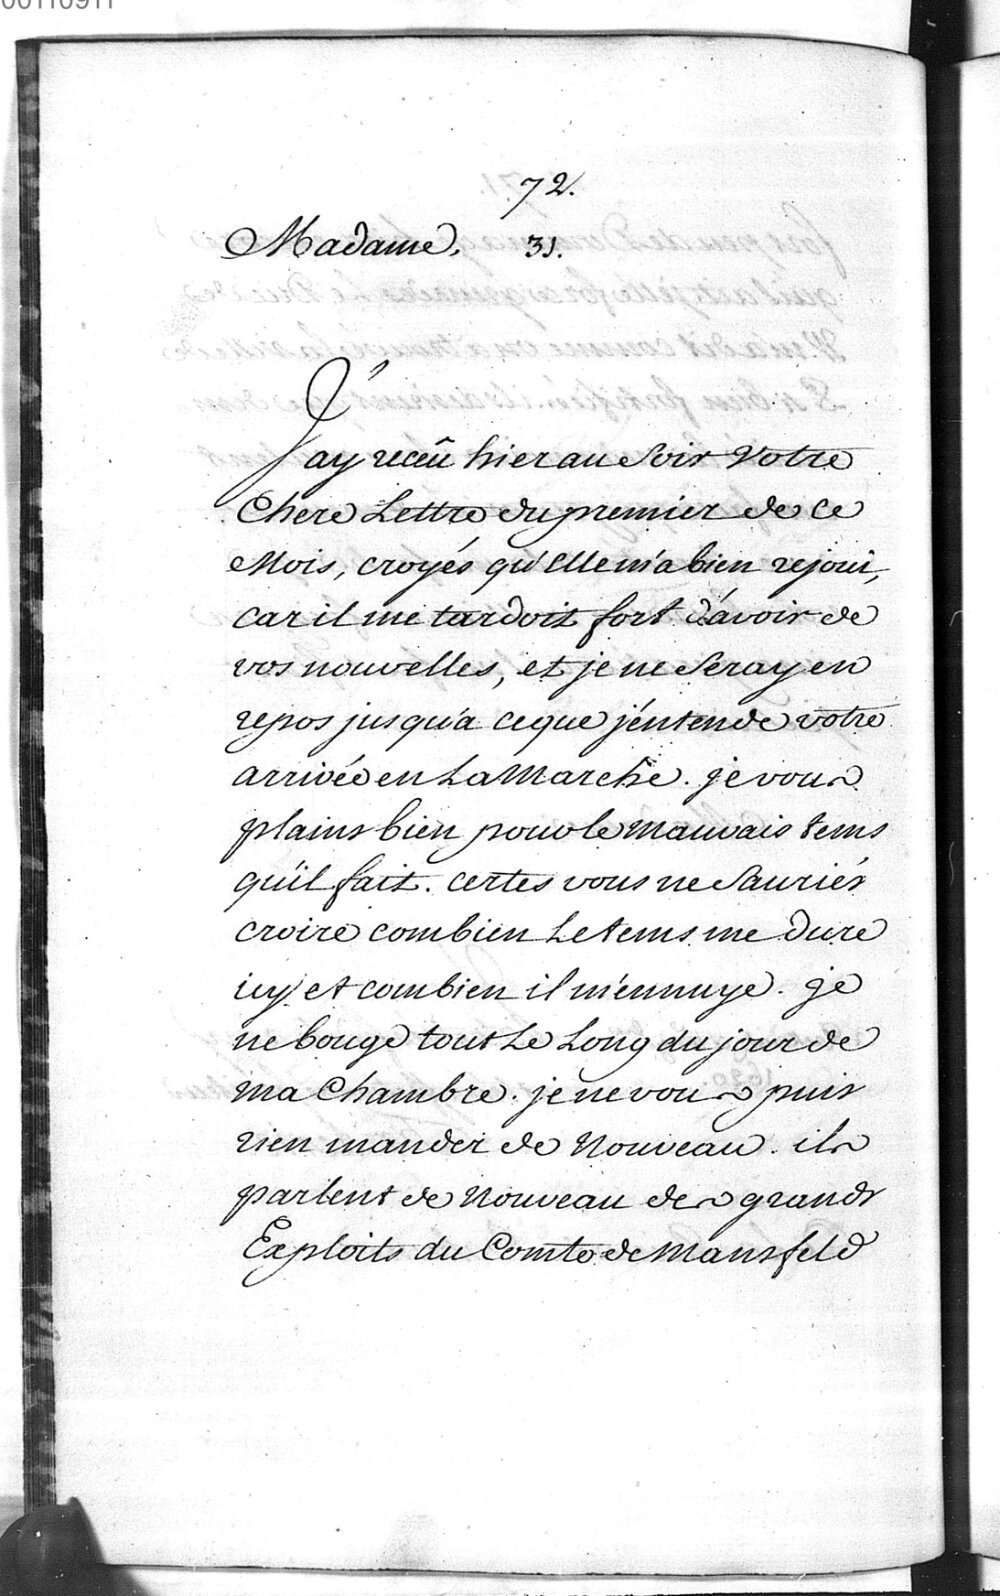 00110911
72.
Madame. 31.
J'ay receû hier au Soir Votre
Chere Lettre du premier de ce
Mois, croyés qu'Elle m'a bien rejoui,
car il me tardoit fort d'avoir de
vos nouvelles, et je ne Seray en
repos jusqu'a ce que j'entende votre
arrivée en La Marche. je vous
plains bien pour le mauvais tems
qu'il fait. certes vous ne Sauriés
croire combien Le tems me dure
icy et combien il m'ennuye. je
ne bouge tout Le Long du jour de
ma Chambre. je ne vous puis
rien mander de Nouveau. ils
parlent de Nouveau des grands
Exploits du Comte de Mansfeld